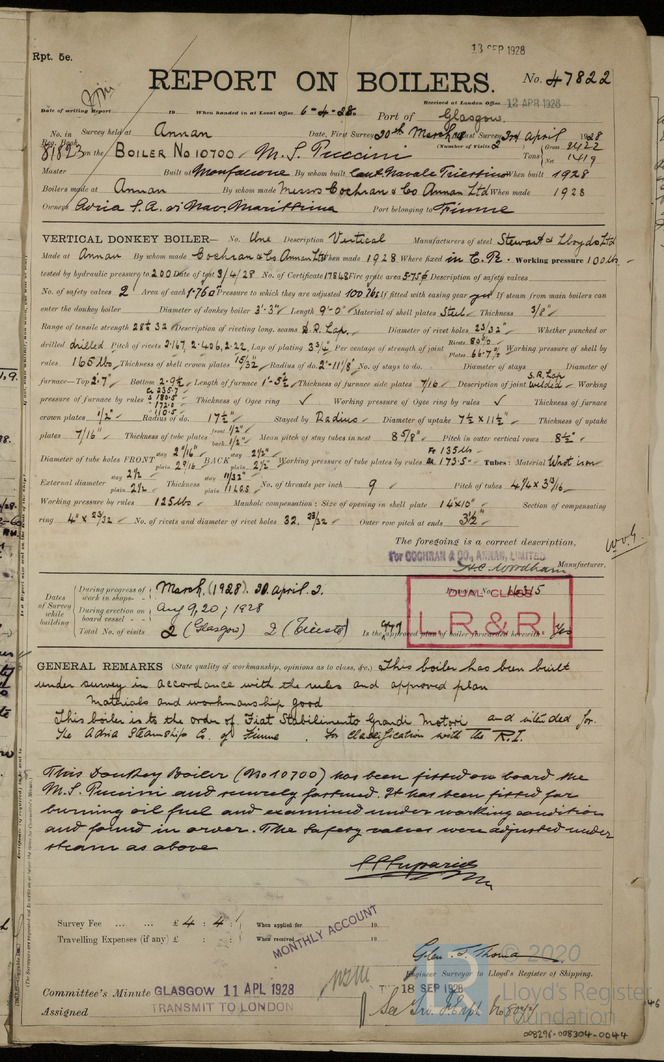 13 SEP 1928
Rpt. 5e.
REPORT ON BOILERS.
No. 47822
Received at London Office 12 APR 1928
Date of writing Report 19 When handed in at Local Office 6-4-28. Port of Glasgow
No. in Survey held at Annan Date, First Survey 30th March Last Survey 3rd April 1928
Reg. Book. (Number of Visits 2) Gross 2422
81823 on the BOILER No 10700 / M.S. Puccini Tons Net 1419
Master Built at Monfalcone By whom built Cant. Navale Triestino When built 1928
Boilers made at Annan By whom made Messrs Cochran & Co Annan Ltd When made 1928
Owners Adria S.A. di Nav. Marittima Port belonging to Fiume
VERTICAL DONKEY BOILER— No. One Description Vertical Manufacturers of steel Stewart & Lloyds Ltd
Made at Annan By whom made Cochran & Co. Annan Ltd When made 1928 Where fixed in E.R. Working pressure 100 lbs
tested by hydraulic pressure to 200 Date of test 3/4/28 No. of Certificate 17848 Fire grate area 5.75 Description of safety valves
No. of safety valves 2 Area of each 1.760" Pressure to which they are adjusted 100 lbs If fitted with easing gear yes If steam from main boilers can
enter the donkey boiler Diameter of donkey boiler 3'-3" Length 9'-0" Material of shell plates Steel Thickness 3/8"
Range of tensile strength 28 & 32 Description of riveting long. seams D.R. Lap. Diameter of rivet holes 23/32" Whether punched or
drilled drilled Pitch of rivets 2.167, 2.406, 2.22 Lap of plating 3 3/4" Per centage of strength of joint Rivets 80% Plates 66.7% Working pressure of shell by
rules 165 lbs Thickness of shell crown plates 15/32" Radius of do. 2'-11 1/8" No. of stays to do. Diameter of stays Diameter of
furnace—Top 2'-7" Bottom 2'-9 1/2 Length of furnace 1'-5 1/2 Thickness of furnace side plates 7/16 Description of joint S.R. Lap welded Working
pressure of furnace by rules Thickness of Ogee ring ✓ Working pressure of Ogee ring by rules ✓ Thickness of furnace
crown plates 1/2" Radius of do. 17 1/2" Stayed by Radius Diameter of uptake 7 1/2 x 11 1/2" Thickness of uptake
plates 7/16" Thickness of tube plates front 1/2" back 1/2" Mean pitch of stay tubes in nest 8 5/8" Pitch in outer vertical rows 8 1/2"
Diameter of tube holes FRONT stay 2 9/16" plain 2 9/16 BACK stay 2 1/2" plain 2 1/2" Working pressure of tube plates by rules Fr 135 lbs 173.5 Tubes: Material Wrt iron
External diameter stay 2 1/2 plain 2 1/2 Thickness stay 11/32" plain 11 L.S.G No. of threads per inch 9 Pitch of tubes 4 1/4 x 3 3/16
Working pressure by rules 125 lbs Manhole compensation: Size of opening in shell plate 14 x 10" Section of compensating
ring 4" x 23/32 No. of rivets and diameter of rivet holes 32, 23/32 Outer row pitch at ends 3 1/2"
The foregoing is a correct description,
For COCHRAN & CO., ANNAN, LIMITED
Manufacturer.
Dates of Survey while building
During progress of work in shops March (1928). 30 April 3.
During erection on board vessel Aug 9, 20; 1928
Total No. of visits 2 (Glasgow) 2 (Trieste) Is the approved plan of boiler forwarded herewith Yes
DUAL CLASS
LR & RI
GENERAL REMARKS (State quality of workmanship, opinions as to class, &c.) This boiler has been built
under survey in accordance with the rules and approved plan
Materials and workmanship good
This boiler is to the order of Fiat Stabilimento Grandi Motori and intended for
the Adria Steamship Co. of Fiume. For classification with the R.I.
This Donkey Boiler (No 10700) has been fitted on board the
M.S. Puccini and securely fastened. It has been fitted for
burning oil fuel and examined under working condition
and found in order. The safety valves were adjusted under
steam as above
Survey Fee ... ... £ 4 : 4 : When applied for 19
Travelling Expenses (if any) £ : : When received 19
MONTHLY ACCOUNT
Engineer Surveyor to Lloyd's Register of Shipping.
Committee's Minute GLASGOW 11 APL 1928
18 SEP 1928
Assigned TRANSMIT TO LONDON
© 2020
Lloyd's Register
Foundation
008296-008304-0044